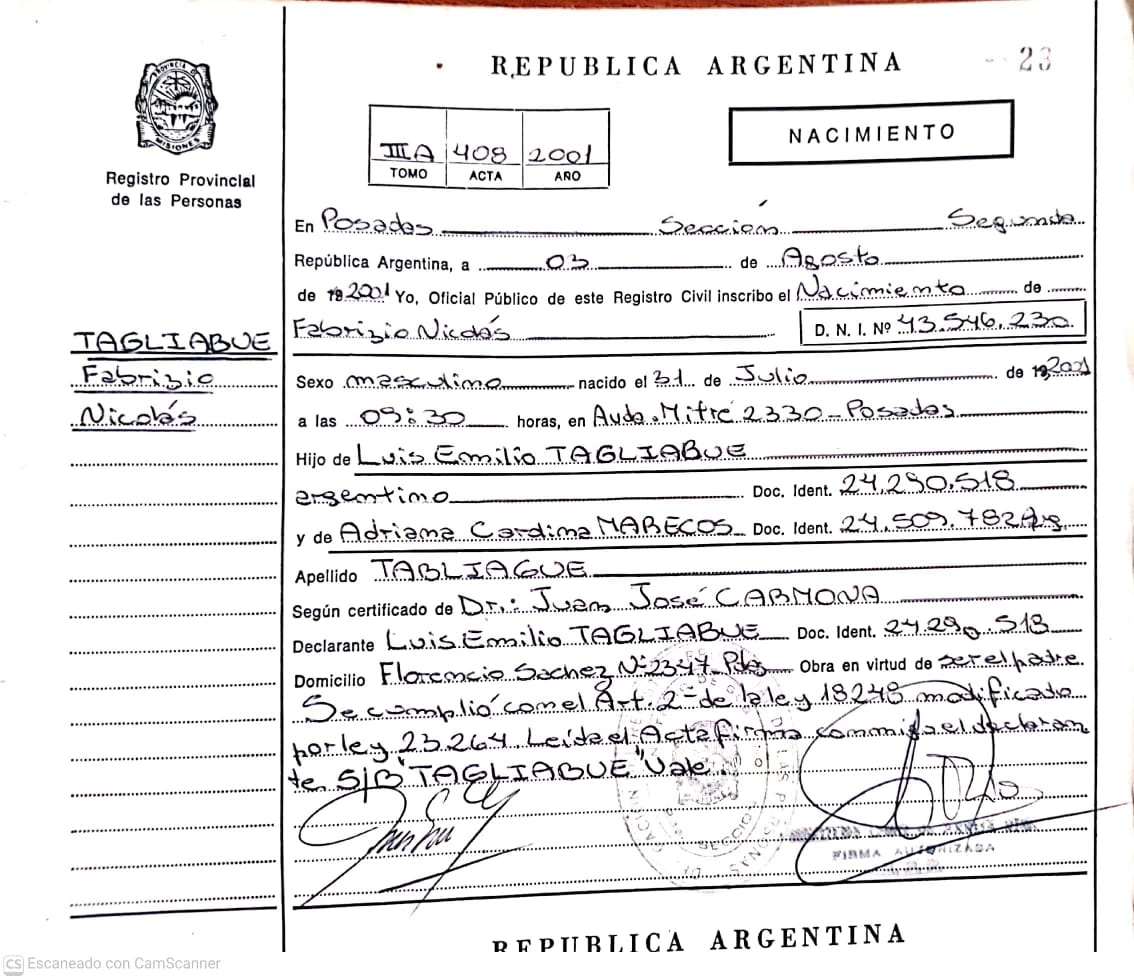 REPUBLICA ARGENTINA
23
PROVINCIA
MISIONES
Registro Provincial
de las Personas
IIIA 408 2001
TOMO ACTA AÑO
NACIMIENTO
En Posadas Sección Segunda
República Argentina, a 03 de Agosto
de 19 2001 Yo, Oficial Público de este Registro Civil inscribo el Nacimiento de
Fabrizio Nicolás D. N. I. Nº 43.546.230
TAGLIABUE
Fabrizio
Nicolás
Sexo masculino nacido el 31 de Julio de 19 2001
a las 09:30 horas, en Avda. Mitre 2330 - Posadas
Hijo de Luis Emilio TAGLIABUE
argentino Doc. Ident. 24.290.518
y de Adriana Carolina MARECOS Doc. Ident. 24.509.782
Apellido TABLIAGUE
Según certificado de Dr.: Juan José CARMONA
Declarante Luis Emilio TAGLIABUE Doc. Ident. 24.290.518
Domicilio Florencio Sachez Nº 2347 Pdas Obra en virtud de ser el padre.
Se cumplió con el Art. 2º de la ley 18248 modificado
por ley 23.264 Leída el Acta firma conmigo el declaran
te. S/B "TAGLIABUE" Vale.
SECCION
FIRMA AUTORIZADA
REPUBLICA ARGENTINA
CS Escaneado con CamScanner